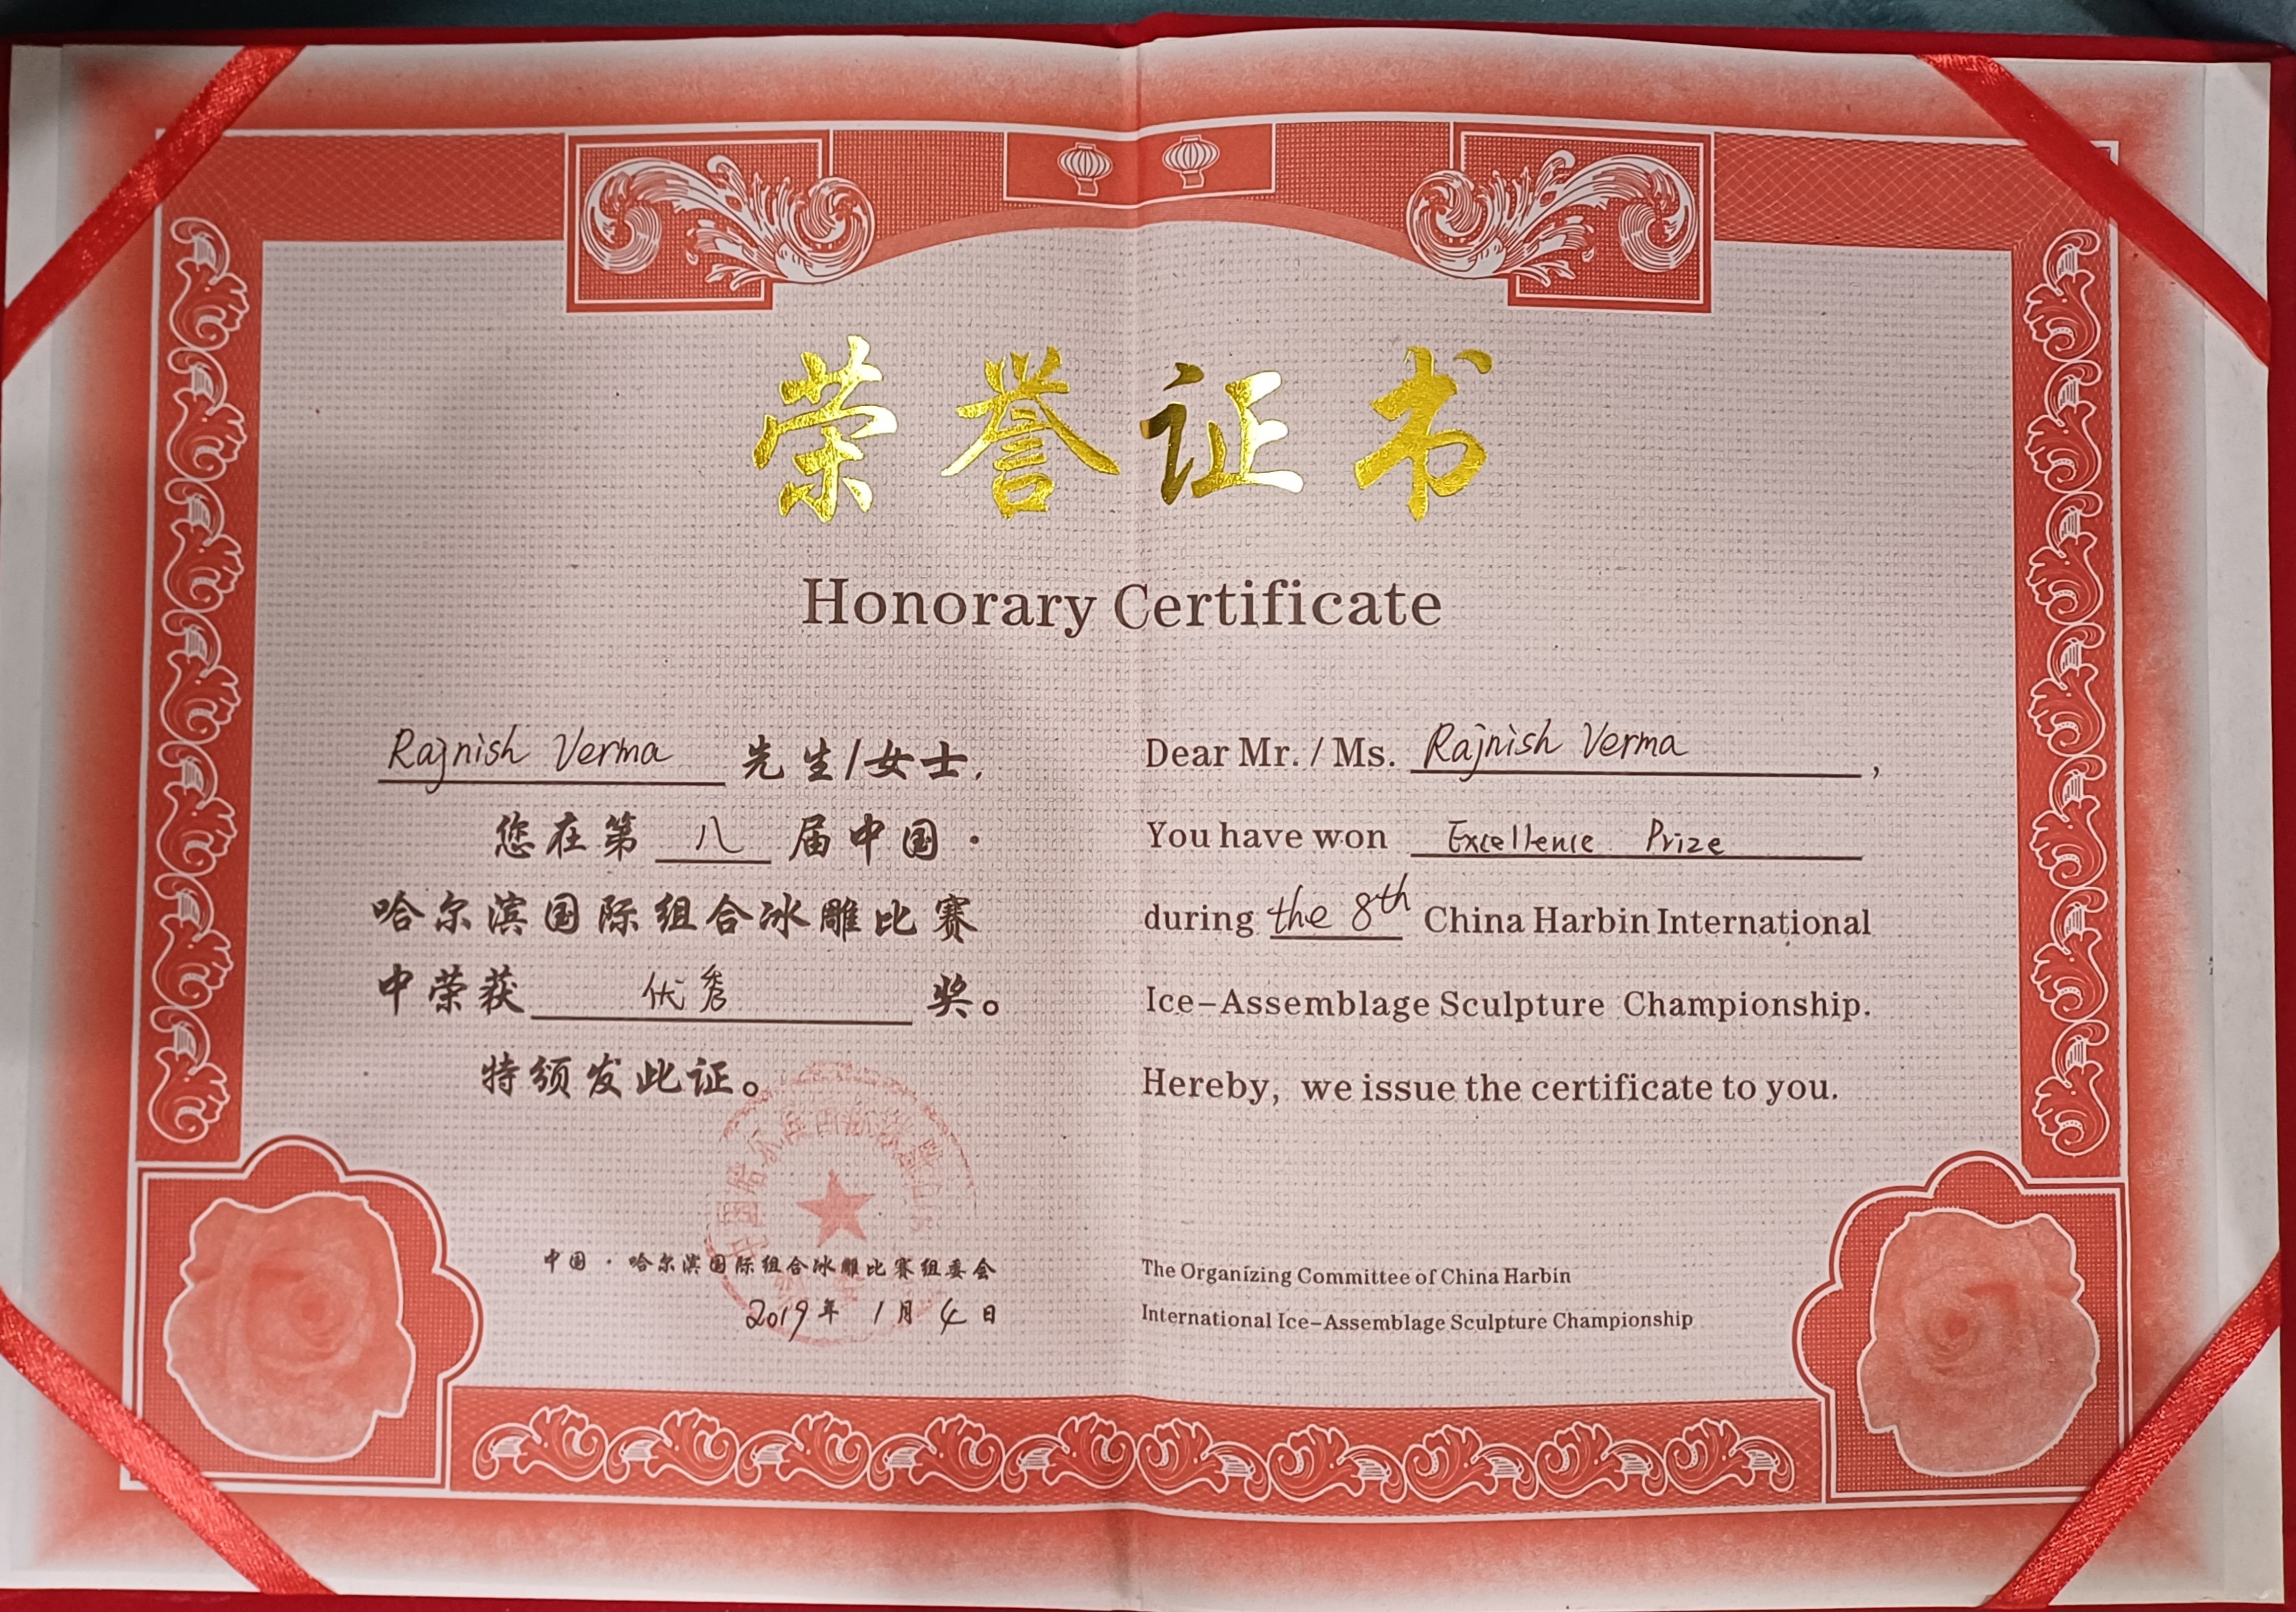 荣誉证书
Honorary Certificate
Rajnish Verma 先生/女士,
您在第 八 届中国·
哈尔滨国际组合冰雕比赛
中荣获 优秀 奖。
特颁发此证。
中国·哈尔滨国际组合冰雕比赛组委会
2019年 1月 4日
Dear Mr. / Ms. Rajnish Verma ,
You have won Excellence Prize
during the 8th China Harbin International
Ice-Assemblage Sculpture Championship.
Hereby, we issue the certificate to you.
The Organizing Committee of China Harbin
International Ice-Assemblage Sculpture Championship